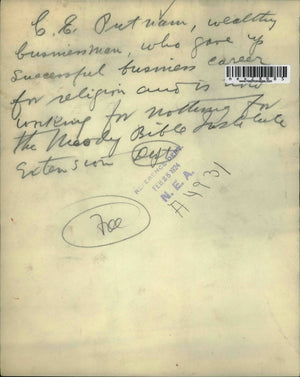 C. E. Putnam, wealthy
businessman, who gave up
successful business career
for religion and is now
working for nothing for
the Moody Bible Institute
Extension Dept
REFERENCE DEPT.
FEB 25 1924
N. E. A.
A4931